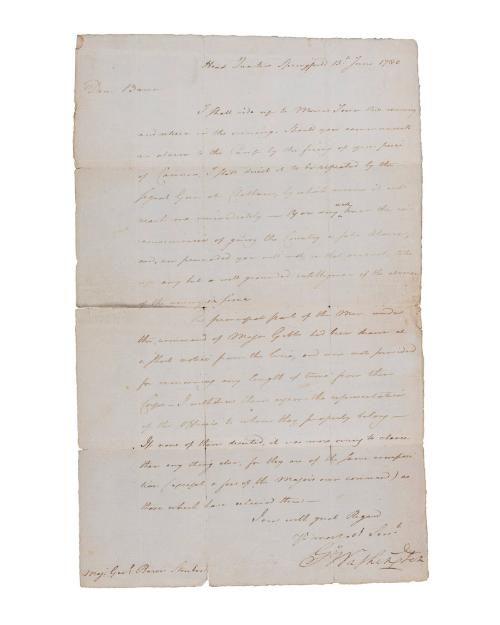 Head Quarters Springfield 13th June 1780
Dear Baron
I shall ride up to Morris Town this evening
and return in the morning. Should you communicate
an alarm to the Camp by the firing of your piece
of Cannon, I shall direct it to be repeated by the
Signal Gun at Chatham, by which means it will
reach me immediately — You very well know the in
conveniences of giving the Country a false Alarm,
and, am persuaded you will not in that respect take
up any but a well grounded intelligence of the advance
of the enemy in force
The principal part of the Men under
the command of Major Gibbs had been drawn at
a short notice from the lines, and were not provided
for remaining any length of time from their
Corps — I withdrew them upon the representation
of the Officers to whom they properly belong —
If none of them deserted, it was more owing to chance
than any thing else, for they are of the same composi
tion (except a few of the Majors own command) as
those which have relieved them —
I am with great Regard
Yr most obt Servt
Go Washington
Maj. Genl Baron Steuben